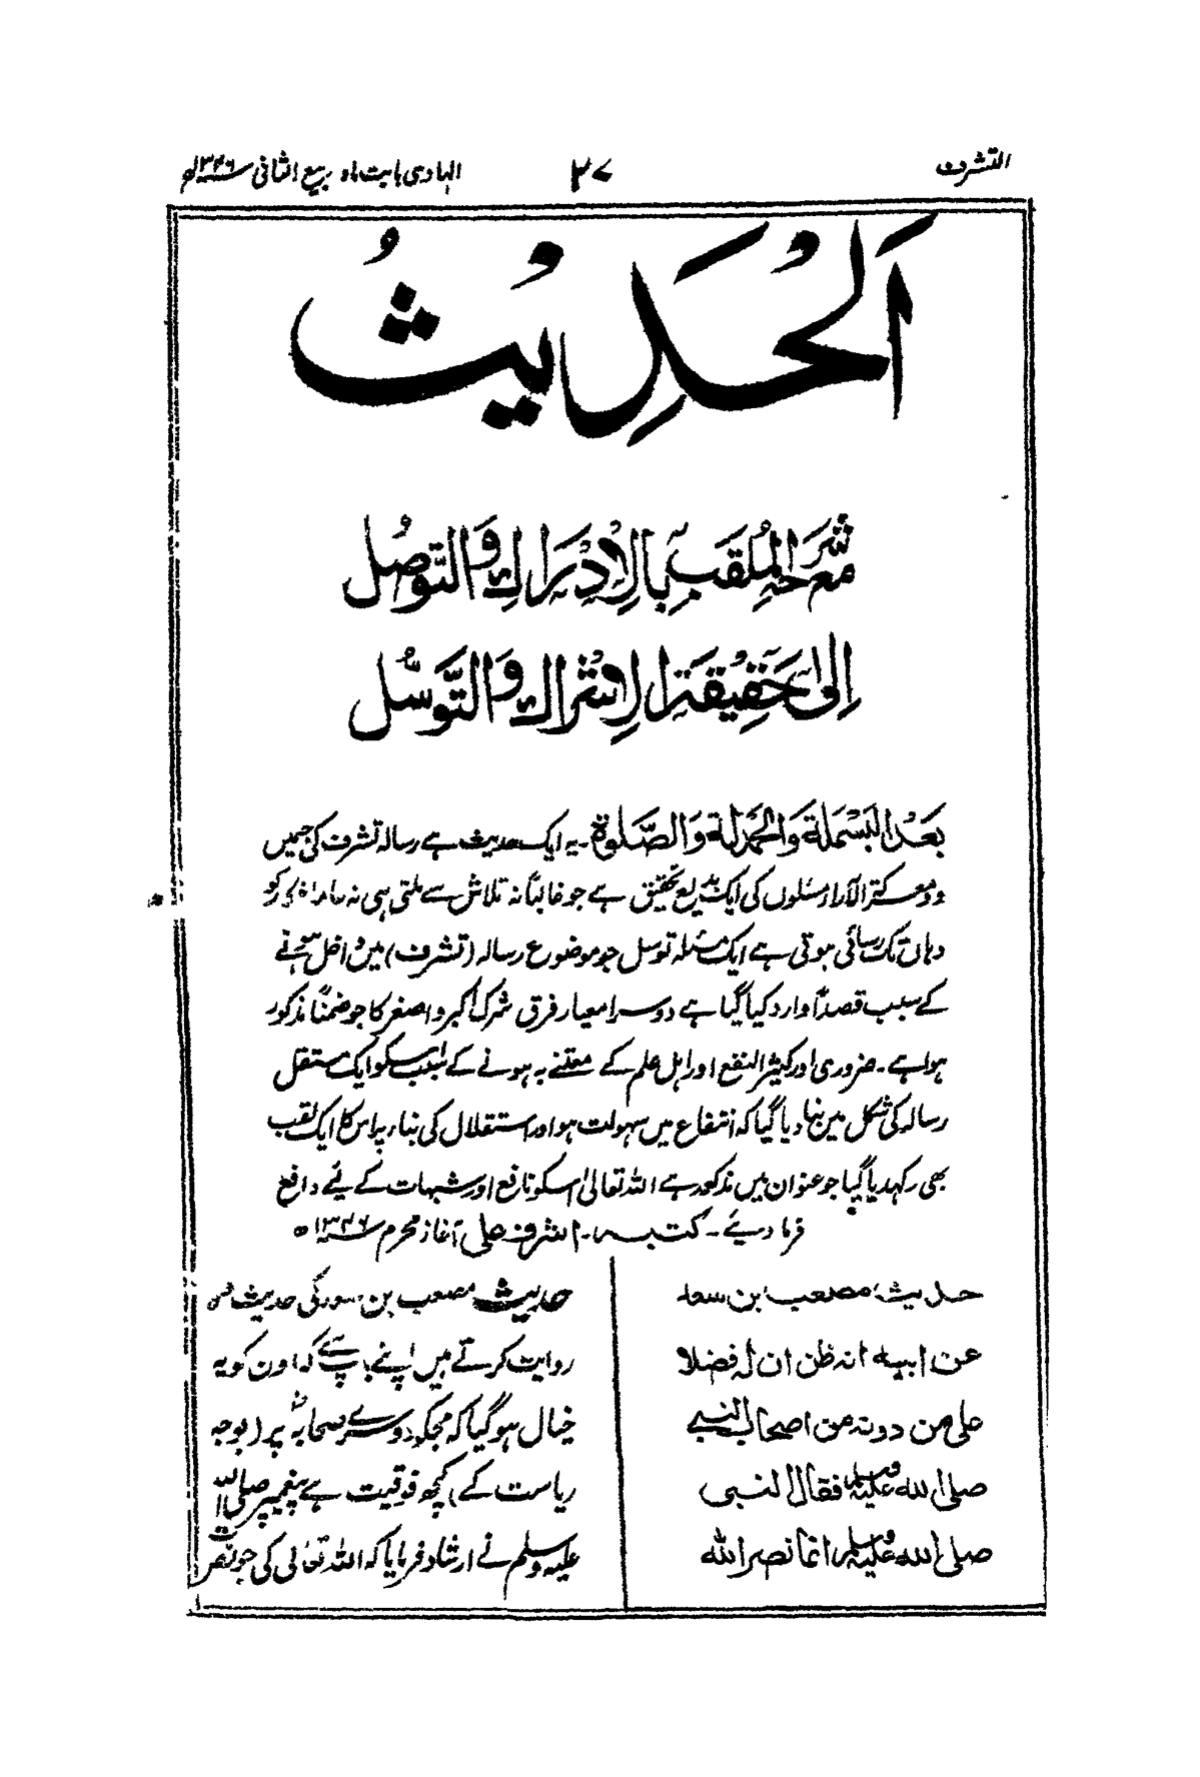 التشرف
۲۷
الہادی بابت ماہ ربیع الثانی ۱۳۴۶ھ
اَلْحَدِیْثُ
مَعَ شَرْحِہِ الْمُلَقَّبِ بِالْاِدْرَاکِ وَالتَّوَصُّلِ
اِلٰی حَقِیْقَۃِ الْاِشْرَاکِ وَالتَّوَسُّلِ
بَعْدَ الْبَسْمَلَۃِ وَالْحَمْدَلَۃِ وَالصَّلٰوۃِ ۔ یہ ایک حدیث ہے رسالہ تشرف کی جسمیں
دو معرکۃ الآرا مسئلوں کی ایک بدیع تحقیق ہے جو غالباً نہ تلاش سے ملتی ہی نہ
وہاں تک رسائی ہوتی ہے ایک مسئلہ توسل جو موضوع رسالہ (تشرف) میں داخل ہونے
کے سبب قصداً وارد کیا گیا ہے دوسرا معیار فرق شرک اکبر و اصغر کا جو ضمناً مذکور
ہوا ہے ۔ ضروری اور کثیر النفع اور اہل علم کے معتنے بہ ہونے کے سبب اسکو ایک مستقل
رسالہ کی شکل میں بنا دیا گیا کہ انتفاع میں سہولت ہو اور استقلال کی بناء پر اس کا ایک لقب
بھی رکھدیا گیا جو عنوان میں مذکور ہے اللہ تعالیٰ اسکو نافع اور شبہات کے لیے دافع
فرما دیے ۔ کتبہ ۔ اشرف علی آغاز محرم ۱۳۴۶ھ
حدیث؛ مصعب بن سعد
عن ابیہ انہ ظن ان لہ فضلا
علی من دونہ من اصحاب النبی
صلی اللہ علیہ وسلم فقال النبی
صلی اللہ علیہ وسلم انما نصر اللہ
حدیث مصعب بن سعد کی حدیث میں
روایت کرتے ہیں اپنے باپ سے کہ اون کو یہ
خیال ہو گیا کہ مجکو دوسرے صحابہؓ پر (بوجہ
ریاست کے) کچھ فوقیت ہے پیغمبر صلی اللہ
علیہ وسلم نے ارشاد فرمایا کہ اللہ تعالی کی جو نصرت